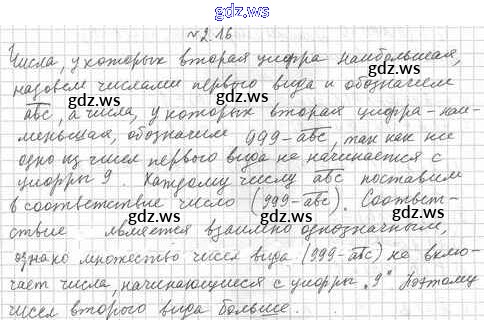 №2.16
gdz.ws gdz.ws
Числа, у которых вторая цифра наибольшая,
назовем числами первого вида и обозначим
gdz.ws gdz.ws
abc, а числа, у которых вторая цифра - наи-
меньшая, обозначим 999-abc, так как не
gdz.ws
одно из чисел первого вида не начинается с
цифры 9. Каждому числу abc поставим
gdz.ws gdz.ws
в соответствие число (999-abc). Соответ-
gdz.ws
ствие является взаимно однозначным,
gdz.ws gdz.ws
однако множество чисел вида (999-abc) не вклю-
чает числа, начинающиеся с цифры "9" Поэтому
gdz.ws
чисел второго вида больше.
gdz.ws